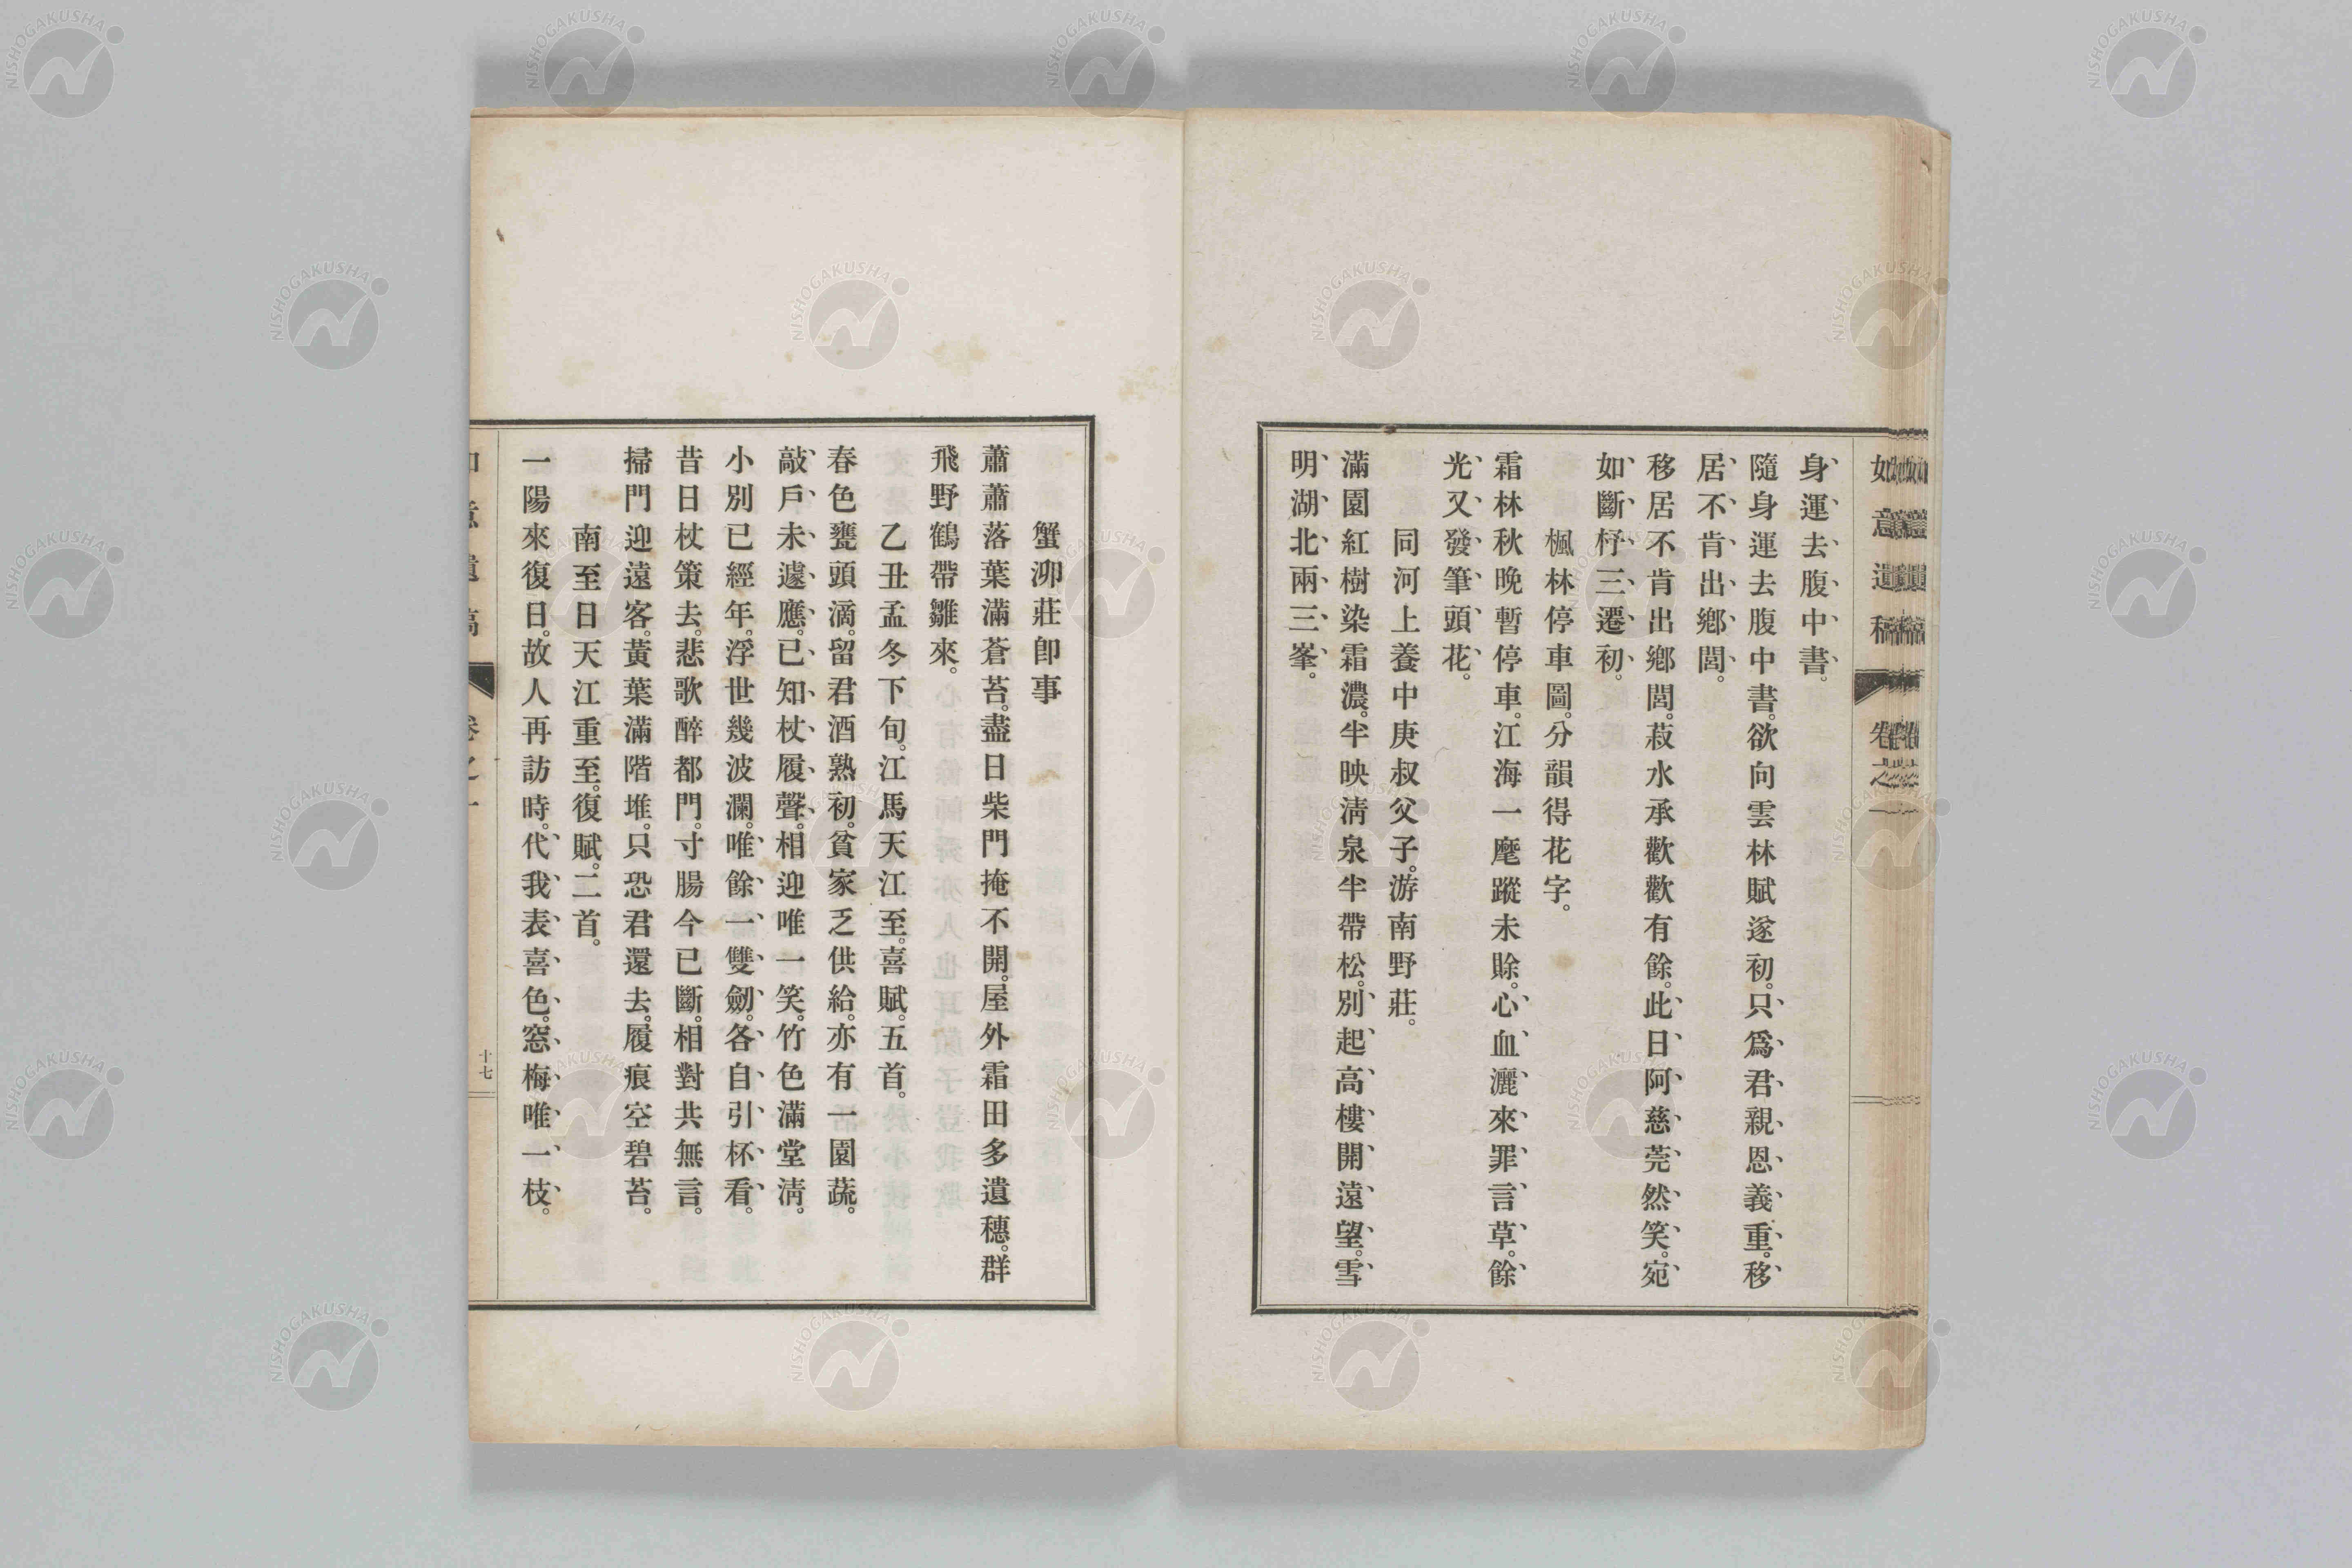 如意遺稿 卷之一
身運去腹中書。
隨身運去腹中書。欲向雲林賦遂初。只爲君親恩義重。移
居不肯出鄉閭。
移居不肯出鄉閭。菽水承歡歡有餘。此日阿慈莞然笑。宛
如斷杼三遷初。
楓林停車圖。分韻得花字。
霜林秋晚暫停車。江海一麾蹤未賒。心血灑來罪言草。餘
光又發筆頭花。
同河上養中庚叔父子。游南野莊。
滿園紅樹染霜濃。半映淸泉半帶松。別起高樓開遠望。雪
明湖北兩三峯。
蟹泖莊卽事
蕭蕭落葉滿蒼苔。盡日柴門掩不開。屋外霜田多遺穗。群
飛野鶴帶雛來。
乙丑孟冬下旬。江馬天江至。喜賦。五首。
春色甕頭滴。留君酒熟初。貧家乏供給。亦有一園蔬。
敲戶未遽應。已知杖履聲。相迎唯一笑。竹色滿堂淸。
小別已經年。浮世幾波瀾。唯餘一雙劒。各自引杯看。
昔日杖策去。悲歌醉都門。寸腸今已斷。相對共無言。
掃門迎遠客。黃葉滿階堆。只恐君還去。履痕空碧苔。
南至日天江重至。復賦。二首。
一陽來復日。故人再訪時。代我表喜色。窓梅唯一枝。
十七
NISHOGAKUSHA